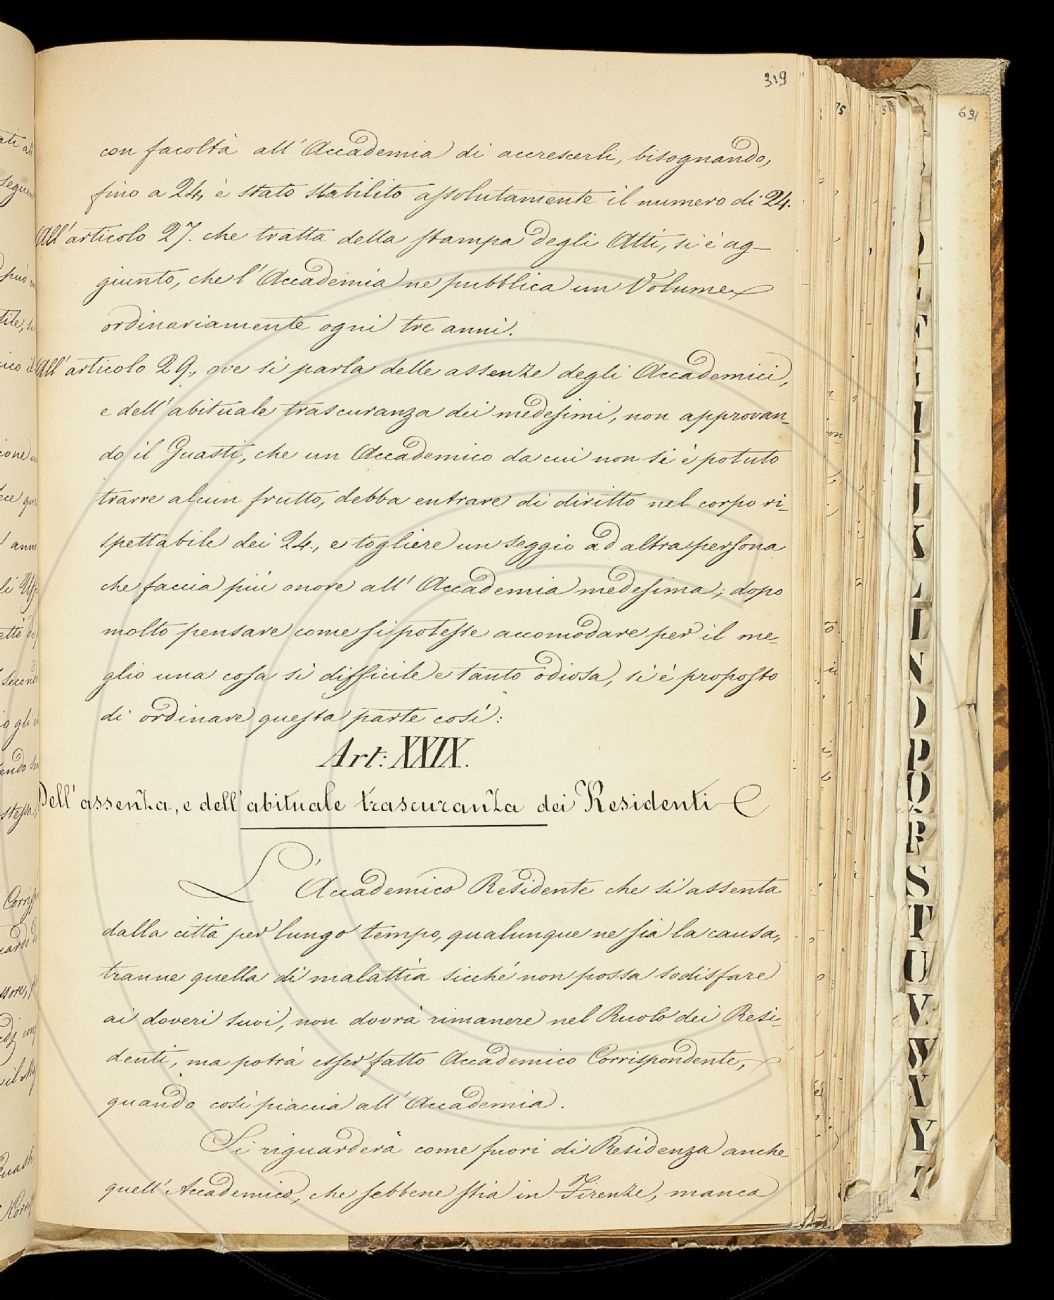 319
con facoltà all'Accademia di accrescerli, bisognando,
fino a 24, è stato stabilito assolutamente il numero di 24.
All'articolo 27. che tratta della stampa degli Atti, si è ag-
giunto, che l'Accademia ne pubblica un Volume
ordinariamente ogni tre anni.
All'articolo 29., ove si parla delle assenze degli Accademici,
e dell'abituale trascuranza dei medesimi, non approvan-
do il Guasti, che un Accademico da cui non si è potuto
trarre alcun frutto, debba entrare di diritto nel corpo ri-
spettabile dei 24., e togliere un seggio ad altra persona
che faccia più onore all'Accademia medesima; dopo
molto pensare come si potesse accomodare per il me-
glio una cosa sì difficile e tanto odiosa, si è proposto
di ordinare questa parte così:
Art: XXIX.
Dell'assenza, e dell'abituale trascuranza dei Residenti
L'Accademico Residente che si assenta
dalla città per lungo tempo, qualunque ne sia la causa,
tranne quella di malattia sicché non possa sodisfare
ai doveri suoi, non dovrà rimanere nel Ruolo dei Resi-
denti, ma potrà esser fatto Accademico Corrispondente,
quando così piaccia all'Accademia.
Si riguarderà come fuori di Residenza anche
quell'Accademico, che sebbene stia in Firenze, manca